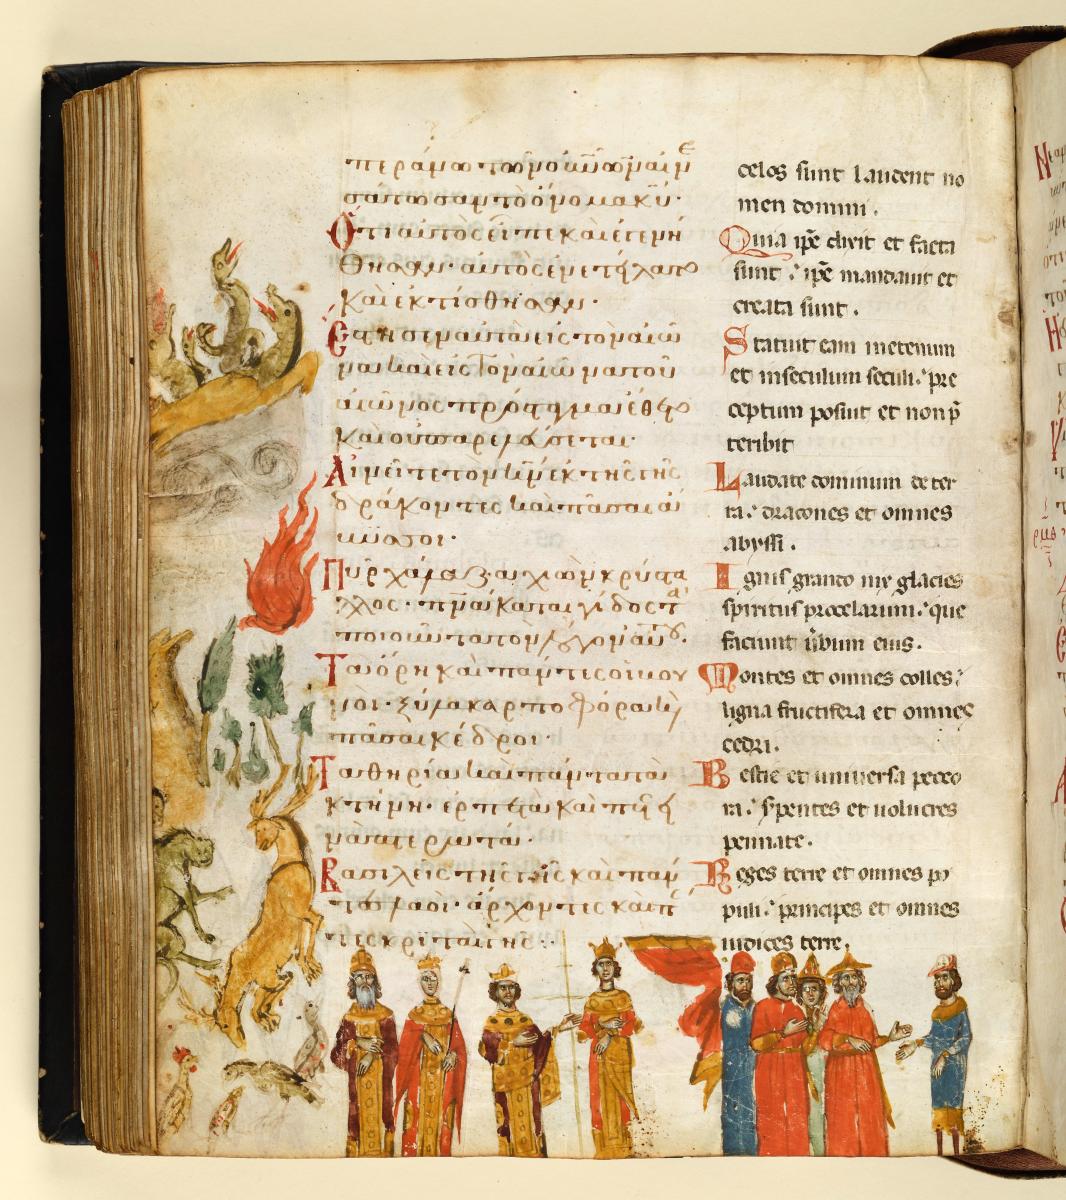 περάνω τῶν οὐνῶν αἰνε
σάτωσαν τὸ ὄνομα κυ·
Ὅτι αὐτὸς εἶπε καὶ ἐγενή
θησαν· αὐτὸς ἐνετείλατο
καὶ ἐκτίσθησαν·
Ἔστησεν αὐτὰ εἰς τὸν αἰῶ
να καὶ εἰς τὸν αἰῶνα τοῦ
αἰῶνος πρόσταγμα ἔθετο
καὶ οὐ παρελεύσεται·
Αἰνεῖτε τὸν κν ἐκ τῆς γῆς
δράκοντες καὶ πᾶσαι ἄ
βυσσοι·
Πῦρ χάλαζα χιὼν κρύστα
λλος· πνα καταιγίδος τὰ
ποιοῦντα τὸν λόγον αὐτοῦ
Τὰ ὄρη καὶ πάντες οἱ βου
νοί· ξύλα καρποφόρα καὶ
πᾶσαι κέδροι·
Τὰ θηρία καὶ πάντα τὰ
κτήνη· ἑρπετὰ καὶ πετει
νὰ πτερωτά·
Βασιλεῖς τῆς γῆς καὶ πάν
τες λαοί· ἄρχοντες καὶ πάν
τες κριταὶ γῆς·
celos sunt laudent no
men domini.
Quia ipe dixit et facta
sunt: ipe mandauit et
creata sunt.
Statuit eam ineternum
et inseculum seculi: pre
ceptum posuit et non p̃
teribit
Laudate dominum de ter
ra: dracones et omnes
abyssi.
Ignis grando nix glacies
spiritus procelarum: que
faciunt ũbum eius.
Montes et omnes colles:
ligna fructifera et omnes
cedri.
Bestie et uniuersa peco
ra: spentes et uolucres
pennate.
Reges terre et omnes po
puli: principes et omnes
iudices terre.